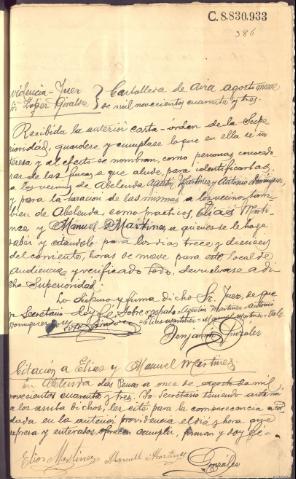 C.8.830.933
386
Providencia-Juez
Sr. López Giraldez
Carballeda de Avia agosto nueve
de mil novecientos cuarenta y tres.
Recibida la anterior carta-orden de la Superioridad,
guárdese y cúmplase lo que en ella se in
teresa y al efecto se nombran, como personas conocedo
ras de las fincas a que alude, para identificarlas,
a los vecinos de Abelenda, Agustín Martínez y Antonio Domínguez
y para la tasación de las mismas a los vecinos tam
bién de Abelenda, como prácticos, Elias Martí
nez y Manuel Martínez a quienes se le haga
saber y citándolo para los días trece y
del corriente, horas de nueve para este local de
audiencia y verificado todo, devuélvase a di
cha Superioridad.
Lo dispuso y firma dicho Sr. Juez, de que
yo Secretario doy fe. Agustín Martínez Antonio
Domínguez Elias Martínez Manuel Martínez. Vale.
Benjamín González
Citación a Elias y Manuel Martínez
En Abelenda das Penas a once de agosto de mil
novecientos cuarenta y tres. Yo Secretario teniendo ante mí
a los arriba dichos, les cité para la comparecencia acor
dada en la anterior providencia el día y hora que
expresa y enterados ofrecen cumplir, firman y doy fe.
Elias Martínez Manuel Martínez
González